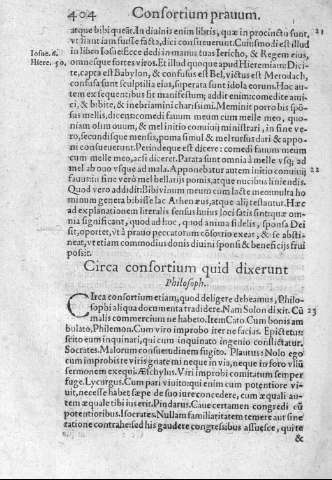 404 Consortium prauum.
atque bibi queāt. In diuinis enim libris, quæ in procinctu sunt, 21
vt fiant iam fuisse facta, dici consueuerunt. Cuiusmodi est illud
Iosue. 6. in libro Iosue: Ecce dedi in manu tua Iericho, & Regem eius,
Hiere. 50. omnesque fortes viros. Et illud quoque apud Hieremiam: Dici
te, capta est Babylon, & confusus est Bel, victus est Merodach,
confusa sunt sculptilia eius, superata sunt idola eorum. Hoc au
tem ex sequentibus fit manifestum; addit enim: comedite amici
ei, & bibite, & inebriamini charissimi. Meminit porro bis spō-
sus mellis, dicens: comedi fauum meum cum melle meo, quo-
niam olim onum, & mel initio conuiuij ministrari, in fine ve-
ro, secundisque mensis, poma simul & mel rursus dari & appo-
ni consueuerunt. Perinde que est dicere: comedi fauum meum
cum melle meo, acsi diceret. Parata sunt omnia à melle vsq; ad
mel ab ouo vsque ad mala. Apponebatur autem initio conuiuij 22
fauus in fine verò mel bellarijs pomis, atque nucibus liniendis.
Quod vero addidit: Bibi vinum meum cum lacte meo multa ho
minum genera bibisse lac Athenæus, atque alij testantur. Hæc
ad explanationem literalis sensus huius loci satis sint: quæ om-
nia significant, quod ad hoc, quod anima fidelis, sponsa Dei
sit, oportet, vt à prauo peccatorum cōsortio exeat, & se absti-
neat, vt etiam commodius donis diuini sponsi & beneficijs frui
possit.
Circa consortium quid dixerunt
Philosoph.
CIrca consortium etiam, quod deligere debeamus, Philo-
sophi aliqua documenta tradidere. Nam Solon dixit. Cū 23
malis commercium ne habeto. Item Cato Cum bonis am
bulato, Philemon. Cum viro improbo iter ne facias. Epictetus:
scito eum inquinati, qui cum inquinato ingenio conflictatur.
Socrates. Malorum consuetudinem fugito. Plautus: Nolo ego
cum improbis te viris gnate mi neque in via, neque in foro vllū
sermonem exequi. Æschylus. Viri improbi comitatum semper
fuge. Lycurgus. Cum pari viuito: qui enim cum potentiore vi-
uit, necesse habet sæpe de suo iure concedere, cum æquali au-
tem æquale tibi ius erit. Pindarus. Caue certamen congredi cū
potentioribus. Isocrates. Nullam familiaritatem temere aut sine
ratione contrahes: ed his gaudete congressibus assuesce, quite
&